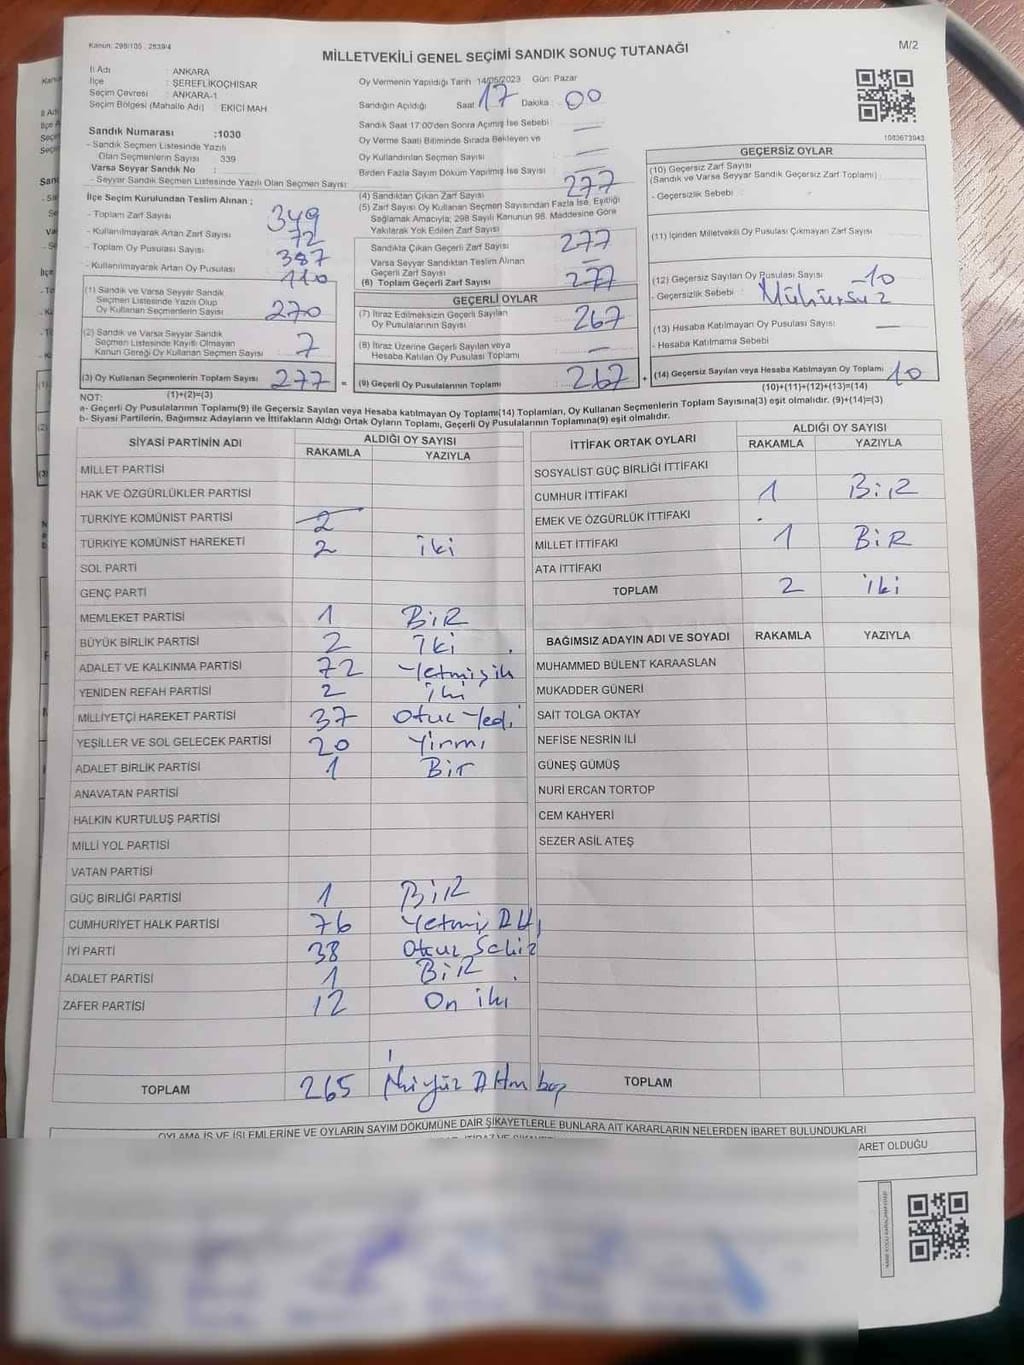 Kanun: 298/105 , 2839/4
M/2
MİLLETVEKİLİ GENEL SEÇİMİ SANDIK SONUÇ TUTANAĞI
İl Adı : ANKARA
İlçe : ŞEREFLİKOÇHİSAR
Seçim Çevresi : ANKARA-1
Seçim Bölgesi (Mahalle Adı) : EKİCİ MAH
Oy Vermenin Yapıldığı Tarih 14/05/2023 Gün: Pazar
Sandığın Açıldığı Saat 17 Dakika : 00
Sandık Saat 17:00'den Sonra Açılmış İse Sebebi : —
Oy Verme Saati Bitiminde Sırada Bekleyen ve
Oy Kullandırılan Seçmen Sayısı : —
Birden Fazla Sayım Döküm Yapılmış İse Sayısı : —
1083673943
Sandık Numarası :1030
- Sandık Seçmen Listesinde Yazılı
Olan Seçmenlerin Sayısı : 339
Varsa Seyyar Sandık No :
- Seyyar Sandık Seçmen Listesinde Yazılı Olan Seçmen Sayısı:
İlçe Seçim Kurulundan Teslim Alınan ;
- Toplam Zarf Sayısı : 349
- Kullanılmayarak Artan Zarf Sayısı : 72
- Toplam Oy Pusulası Sayısı : 387
- Kullanılmayarak Artan Oy Pusulası : 110
(1) Sandık ve Varsa Seyyar Sandık
Seçmen Listesinde Yazılı Olup
Oy Kullanan Seçmenlerin Sayısı : 270
(2) Sandık ve Varsa Seyyar Sandık
Seçmen Listesinde Kayıtlı Olmayan
Kanun Gereği Oy Kullanan Seçmen Sayısı : 7
(3) Oy Kullanan Seçmenlerin Toplam Sayısı : 277 =
(1)+(2)=(3)
(4) Sandıktan Çıkan Zarf Sayısı : 277
(5) Zarf Sayısı Oy Kullanan Seçmen Sayısından Fazla İse, Eşitliği
Sağlamak Amacıyla; 298 Sayılı Kanunun 98. Maddesine Göre
Yakılarak Yok Edilen Zarf Sayısı :
Sandıkta Çıkan Geçerli Zarf Sayısı : 277
Varsa Seyyar Sandıktan Teslim Alınan
Geçerli Zarf Sayısı : —
(6) Toplam Geçerli Zarf Sayısı : 277
GEÇERLİ OYLAR
(7) İtiraz Edilmeksizin Geçerli Sayılan
Oy Pusulalarının Sayısı : 267
(8) İtiraz Üzerine Geçerli Sayılan veya
Hesaba Katılan Oy Pusulası Toplamı : —
(9) Geçerli Oy Pusulalarının Toplamı : 267 +
GEÇERSİZ OYLAR
(10) Geçersiz Zarf Sayısı
(Sandık ve Varsa Seyyar Sandık Geçersiz Zarf Toplamı) :
- Geçersizlik Sebebi :
(11) İçinden Milletvekili Oy Pusulası Çıkmayan Zarf Sayısı :
(12) Geçersiz Sayılan Oy Pusulası Sayısı : 10
- Geçersizlik Sebebi : Mühürsüz
(13) Hesaba Katılmayan Oy Pusulası Sayısı : —
- Hesaba Katılmama Sebebi :
(14) Geçersiz Sayılan veya Hesaba Katılmayan Oy Toplamı : 10
(10)+(11)+(12)+(13)=(14)
NOT:
a- Geçerli Oy Pusulalarının Toplamı(9) ile Geçersiz Sayılan veya Hesaba katılmayan Oy Toplamı(14) Toplamları, Oy Kullanan Seçmenlerin Toplam Sayısına(3) eşit olmalıdır. (9)+(14)=(3)
b- Siyasi Partilerin, Bağımsız Adayların ve İttifakların Aldığı Ortak Oyların Toplamı, Geçerli Oy Pusulalarının Toplamına(9) eşit olmalıdır.
SİYASİ PARTİNİN ADI ALDIĞI OY SAYISI
RAKAMLA YAZIYLA
MİLLET PARTİSİ
HAK VE ÖZGÜRLÜKLER PARTİSİ
TÜRKİYE KOMÜNİST PARTİSİ 2
TÜRKİYE KOMÜNİST HAREKETİ 2 iki
SOL PARTİ
GENÇ PARTİ
MEMLEKET PARTİSİ 1 BİR
BÜYÜK BİRLİK PARTİSİ 2 İki
ADALET VE KALKINMA PARTİSİ 72 Yetmişiki
YENİDEN REFAH PARTİSİ 2 iki
MİLLİYETÇİ HAREKET PARTİSİ 37 Otuz Yedi
YEŞİLLER VE SOL GELECEK PARTİSİ 20 Yirmi
ADALET BİRLİK PARTİSİ 1 Bir
ANAVATAN PARTİSİ
HALKIN KURTULUŞ PARTİSİ
MİLLİ YOL PARTİSİ
VATAN PARTİSİ
GÜÇ BİRLİĞİ PARTİSİ 1 BİR
CUMHURİYET HALK PARTİSİ 76 Yetmiş Altı
İYİ PARTİ 38 Otuz Sekiz
ADALET PARTİSİ 1 BİR
ZAFER PARTİSİ 12 On iki
TOPLAM 265 İkiyüz Altmış beş
İTTİFAK ORTAK OYLARI ALDIĞI OY SAYISI
RAKAMLA YAZIYLA
SOSYALİST GÜÇ BİRLİĞİ İTTİFAKI
CUMHUR İTTİFAKI 1 BİR
EMEK VE ÖZGÜRLÜK İTTİFAKI
MİLLET İTTİFAKI 1 BİR
ATA İTTİFAKI
TOPLAM 2 iki
BAĞIMSIZ ADAYIN ADI VE SOYADI RAKAMLA YAZIYLA
MUHAMMED BÜLENT KARAASLAN
MUKADDER GÜNERİ
SAİT TOLGA OKTAY
NEFİSE NESRİN İLİ
GÜNEŞ GÜMÜŞ
NURİ ERCAN TORTOP
CEM KAHYERİ
SEZER ASİL ATEŞ
TOPLAM
OYLAMA İŞ VE İŞLEMLERİNE VE OYLARIN SAYIM DÖKÜMÜNE DAİR ŞİKAYETLERLE BUNLARA AİT KARARLARIN NELERDEN İBARET BULUNDUKLARI
ARET OLDUĞU